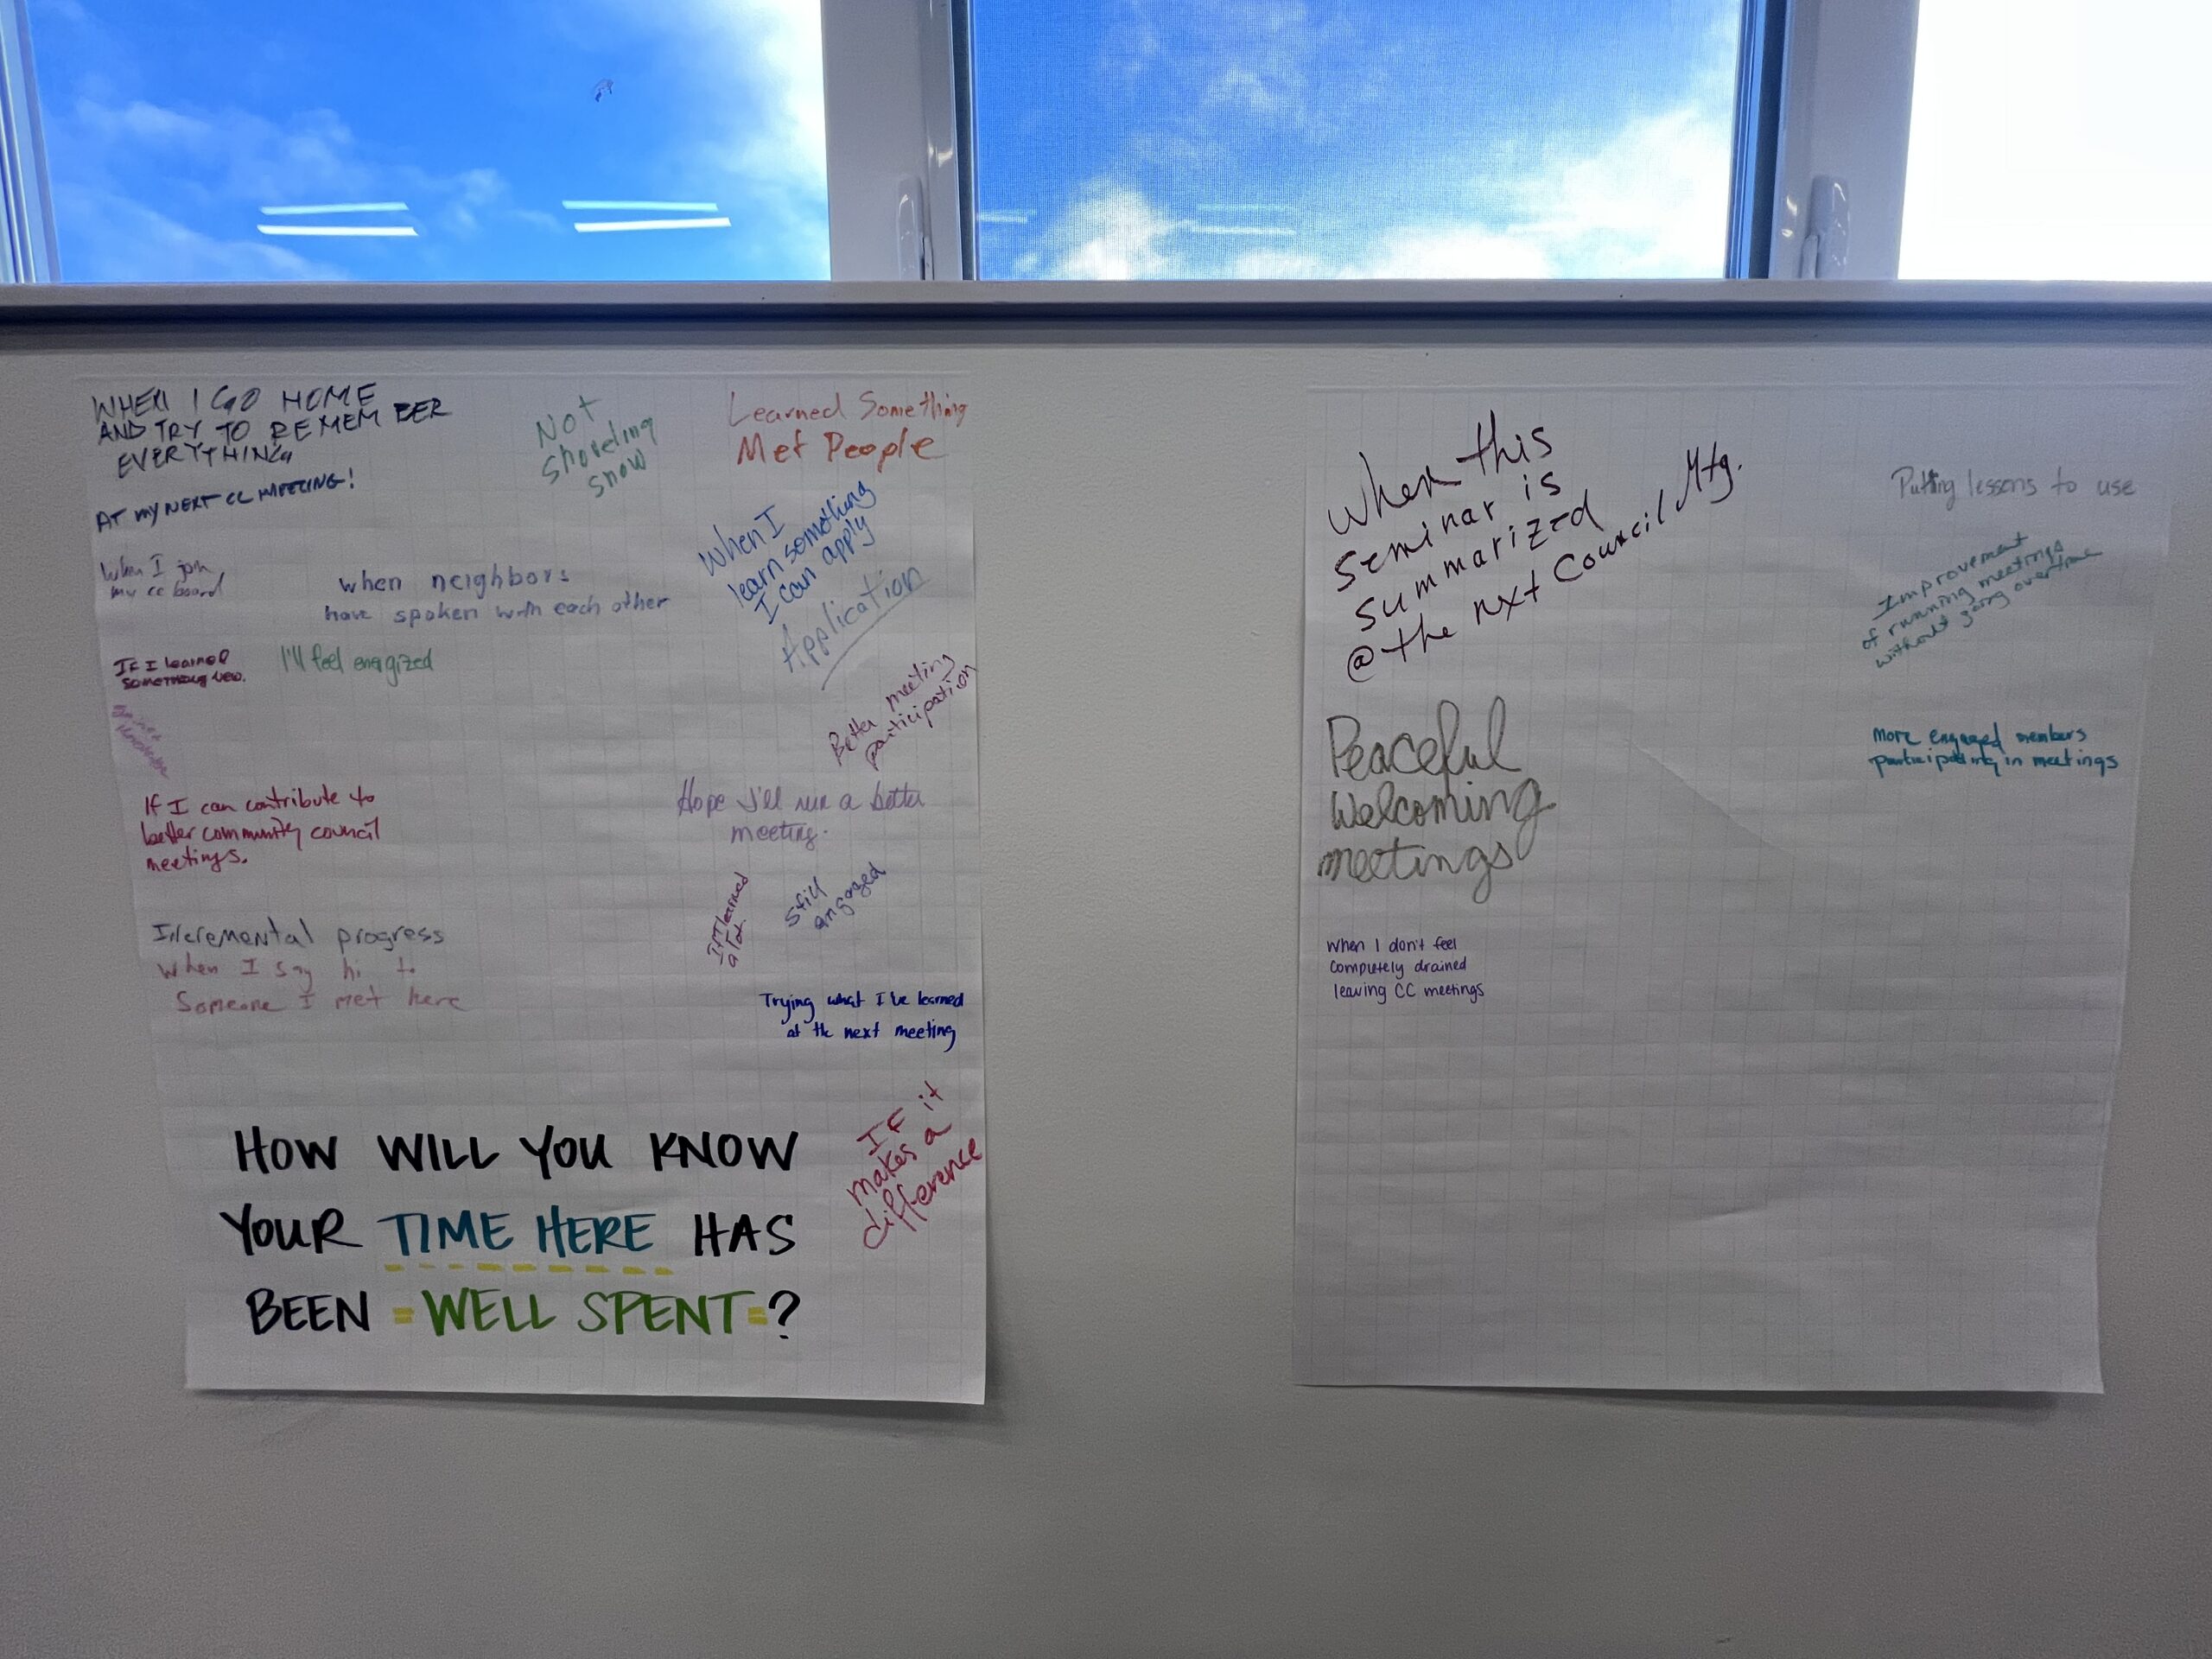 WHEN I GO HOME
AND TRY TO REMEMBER
EVERYTHING
AT MY NEXT CC MEETING!
Not
shoveling
snow
Learned Something
Met People
When I
learn something
I can apply
Application
When I join
my cc board
when neighbors
have spoken with each other
If I learned
something new.
I'll feel energized
Better meeting
participation
If I can contribute to
better community council
meetings.
Hope I'll run a better
meeting.
If I learned
a lot.
Still
engaged
Incremental progress
When I say hi to
Someone I met here
Trying what I've learned
at the next meeting
If it
makes a
difference
HOW WILL YOU KNOW
YOUR TIME HERE HAS
BEEN =WELL SPENT=?
When this
seminar is
summarized
@ the nxt Council Mtg.
Peaceful
Welcoming
meetings
When I don't feel
completely drained
leaving CC meetings
Putting lessons to use
Improvement
of running meetings
without going overtime
More engaged members
participating in meetings